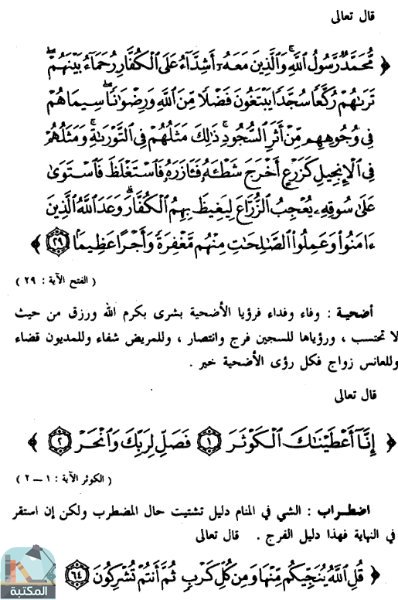 قال تعالى
﴿ مُّحَمَّدٌ رَّسُولُ اللَّهِ وَالَّذِينَ مَعَهُ أَشِدَّاءُ عَلَى الْكُفَّارِ رُحَمَاءُ بَيْنَهُمْ
تَرَىٰهُمْ رُكَّعًا سُجَّدًا يَبْتَغُونَ فَضْلًا مِّنَ اللَّهِ وَرِضْوَانًا سِيمَاهُمْ
فِي وُجُوهِهِم مِّنْ أَثَرِ السُّجُودِ ذَٰلِكَ مَثَلُهُمْ فِي التَّوْرَىٰةِ وَمَثَلُهُمْ
فِي الْإِنجِيلِ كَزَرْعٍ أَخْرَجَ شَطْـَٔهُ فَـَٔازَرَهُ فَاسْتَغْلَظَ فَاسْتَوَىٰ
عَلَىٰ سُوقِهِ يُعْجِبُ الزُّرَّاعَ لِيَغِيظَ بِهِمُ الْكُفَّارَ وَعَدَ اللَّهُ الَّذِينَ
ءَامَنُوا وَعَمِلُوا الصَّـٰلِحَـٰتِ مِنْهُم مَّغْفِرَةً وَأَجْرًا عَظِيمًا ٢٩ ﴾
( الفتح الآية : ٢٩ )
أضحية : وفاء وفداء فرؤيا الأضحية بشرى بكرم الله ورزق من حيث
لا تحتسب ، ورؤياها للسجين فرج وانتصار ، وللمريض شفاء وللمديون قضاء
وللعانس زواج فكل رؤى الأضحية خير .
قال تعالى
﴿ إِنَّا أَعْطَيْنَـٰكَ الْكَوْثَرَ ١ فَصَلِّ لِرَبِّكَ وَانْحَرْ ٢ ﴾
( الكوثر الآية : ١ — ٢ )
اضطراب : الشي في المنام دليل تشتيت حال المضطرب ولكن إن استقر
في النهاية فهذا دليل الفرج . قال تعالى
﴿ قُلِ اللَّهُ يُنَجِّيكُم مِّنْهَا وَمِن كُلِّ كَرْبٍ ثُمَّ أَنتُمْ تُشْرِكُونَ ٦٤ ﴾
المكتبة